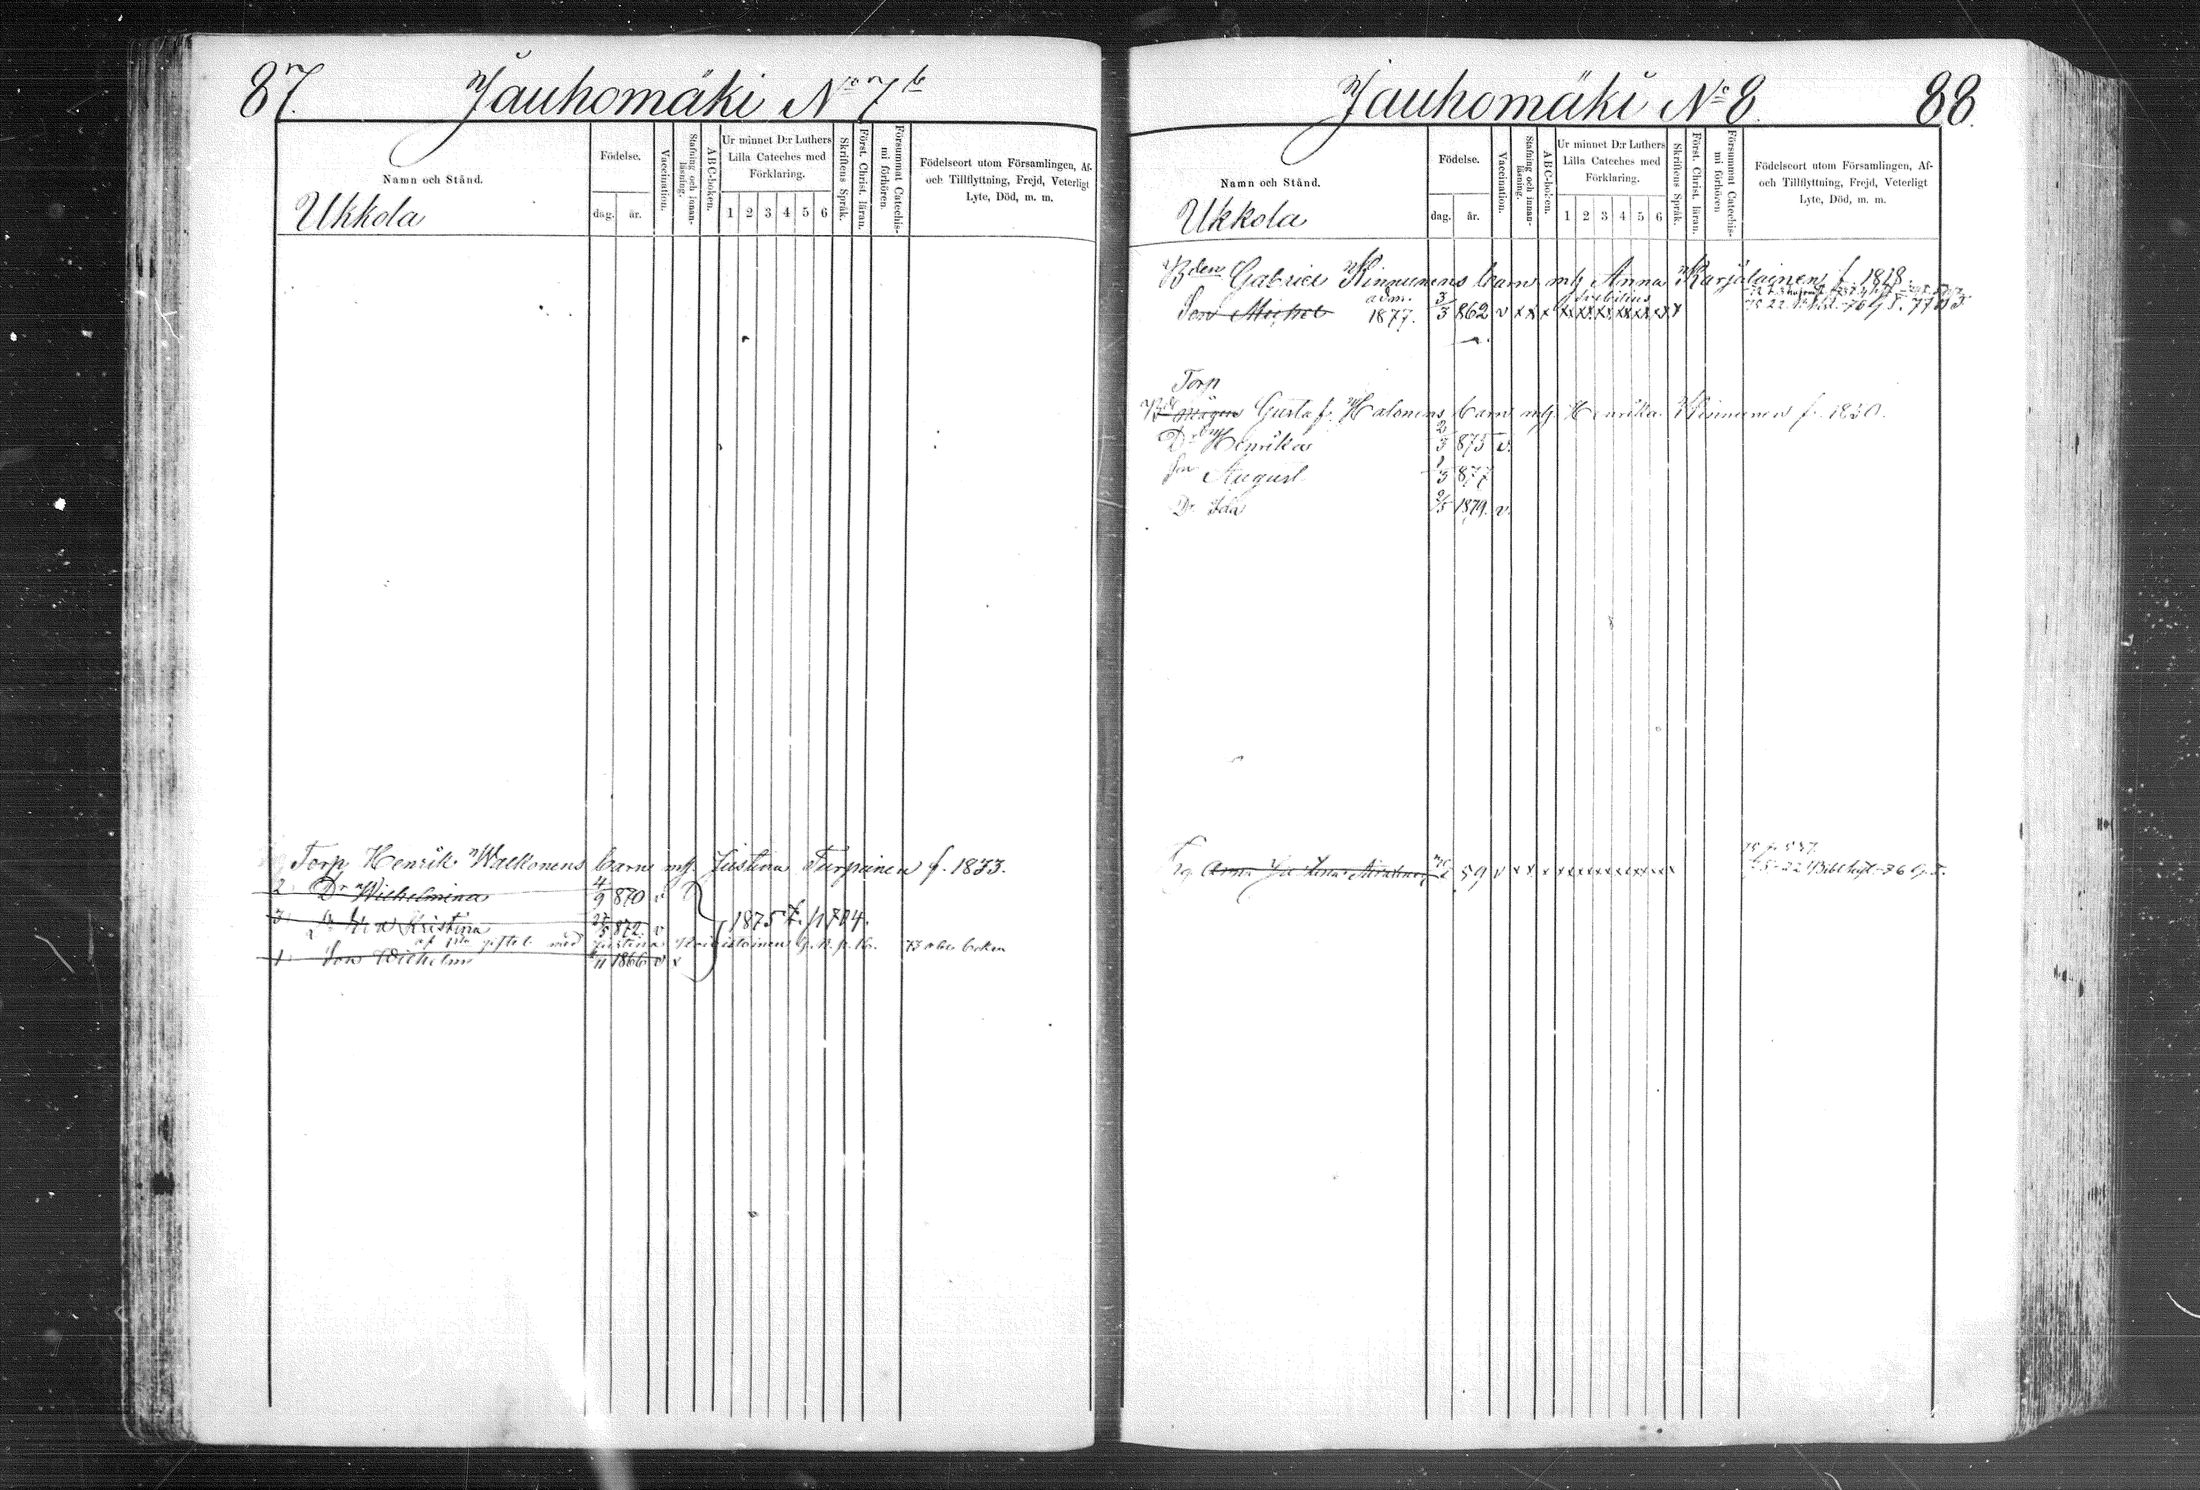 87.
Jauhomäki No 7 b
Namn och Stånd.
Ukkola
Födelse.
dag. år.
Vaccination.
Stafning och innan-läsning.
ABC-boken.
Ur minnet D:r Luthers
Lilla Cateches med
Förklaring.
1 2 3 4 5 6
Skriftens Språk.
Först. Christ. läran.
Försummat Catechis-mi förhören.
Födelseort utom Församlingen, Af-
och Tillflyttning, Frejd, Veterligt
Lyte, Död, m. m.
Torp. Henrik Walkonens barn m/ Justina Turpeinen f. 1833.
2 Dr Wilhelmina 4/9 870 v
3 Dr Kristina 25/5 872 v 1875 f. 1704.
giftet med Justina
1 Son Wilhelm /11 1866 v x
Jauhomäki No 8.
88.
Namn och Stånd.
Ukkola
Födelse.
dag. år.
Vaccination.
Stafning och innan-läsning.
ABC-boken.
Ur minnet D:r Luthers
Lilla Cateches med
Förklaring.
1 2 3 4 5 6
Skriftens Språk.
Först. Christ. läran.
Försummat Catechis-mi förhören
Födelseort utom Församlingen, Af-
och Tillflyttning, Frejd, Veterligt
Lyte, Död, m. m.
Bden Gabriel Kinnunens barn m/ Anna Karjalainen f. 1818.
adm.
Son Michel 1877. 3/3 862 v x x x x x x x x x x
Torp
Gustaf Halonens barn m/ Henrika Kinnunen f. 1850.
Dr Henrika 2/3 875 v.
Son August 1/3 877
Dr Ida 2/5 1879. v.
59 v x x x x x x x x x x